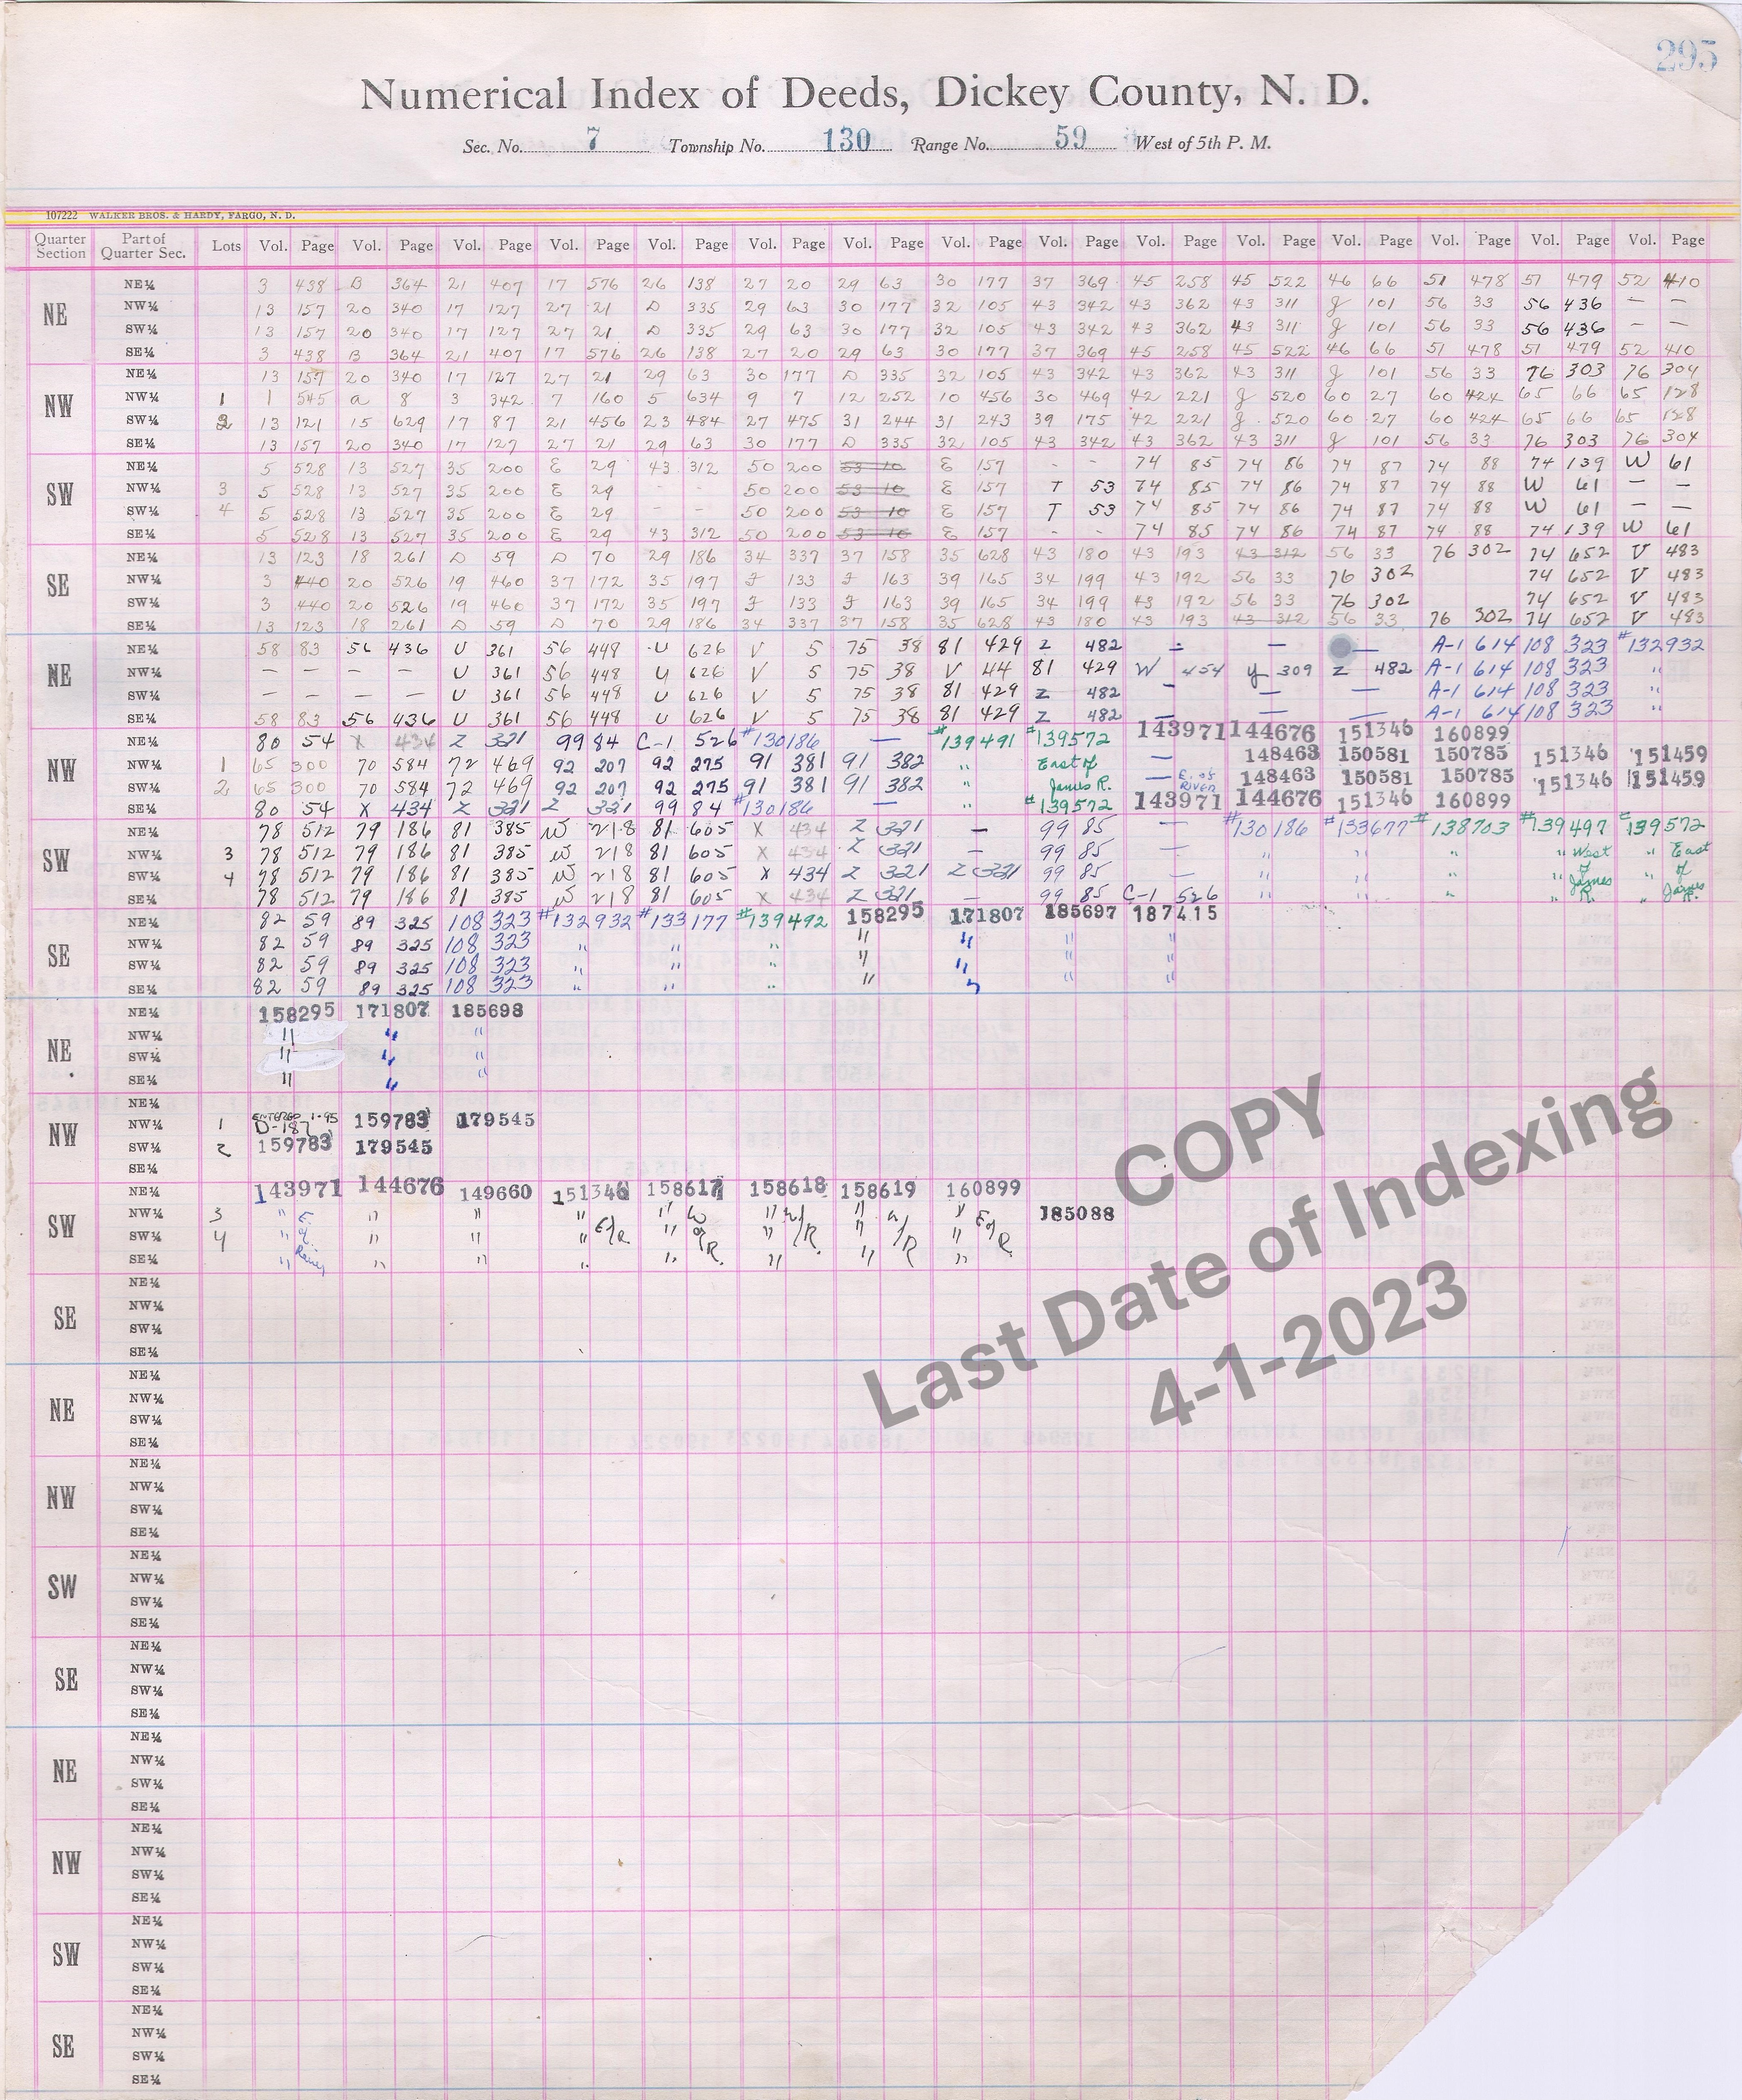 295
Numerical Index of Deeds, Dickey County, N. D.
Sec. No. 7 Township No. 130 Range No. 59 West of 5th P. M.
107222 WALKER BROS. & HARDY, FARGO, N. D.
Quarter Section Part of Quarter Sec. Lots Vol. Page Vol. Page Vol. Page Vol. Page Vol. Page Vol. Page Vol. Page Vol. Page Vol. Page Vol. Page Vol. Page Vol. Page Vol. Page Vol. Page Vol. Page
NE
NE¼ 3 438 B 364 21 407 17 576 26 138 27 20 29 63 30 177 37 369 45 258 45 522 46 66 51 478 51 479 52 410
NW¼ 13 157 20 340 17 127 27 21 D 335 29 63 30 177 32 105 43 342 43 362 43 311 g 101 56 33 56 436 — —
SW¼ 13 157 20 340 17 127 27 21 D 335 29 63 30 177 32 105 43 342 43 362 43 311 g 101 56 33 56 436 — —
SE¼ 3 438 B 364 21 407 17 576 26 138 27 20 29 63 30 177 37 369 45 258 45 522 46 66 51 478 51 479 52 410
NW
NE¼ 13 157 20 340 17 127 27 21 29 63 30 177 D 335 32 105 43 342 43 362 43 311 g 101 56 33 76 303 76 304
NW¼ 1 1 545 a 8 3 342 7 160 5 634 9 7 12 252 10 456 30 469 42 221 g 520 60 27 60 424 65 66 65 128
SW¼ 2 13 121 15 629 17 87 21 456 23 484 27 475 31 244 31 243 39 175 42 221 g 520 60 27 60 424 65 66 65 128
SE¼ 13 157 20 340 17 127 27 21 29 63 30 177 D 335 32 105 43 342 43 362 43 311 g 101 56 33 76 303 76 304
SW
NE¼ 5 528 13 527 35 200 E 29 43 312 50 200 53 10 E 157 - - 74 85 74 86 74 87 74 88 74 139 W 61
NW¼ 3 5 528 13 527 35 200 E 29 - - 50 200 53 10 E 157 T 53 74 85 74 86 74 87 74 88 W 61 — —
SW¼ 4 5 528 13 527 35 200 E 29 - - 50 200 53 10 E 157 T 53 74 85 74 86 74 87 74 88 W 61 — —
SE¼ 5 528 13 527 35 200 E 29 43 312 50 200 53 10 E 157 - - 74 85 74 86 74 87 74 88 74 139 W 61
SE
NE¼ 13 123 18 261 D 59 D 70 29 186 34 337 37 158 35 628 43 180 43 193 43 312 56 33 76 302 74 652 V 483
NW¼ 3 440 20 526 19 460 37 172 35 197 F 133 F 163 39 165 34 199 43 192 56 33 76 302 74 652 V 483
SW¼ 3 440 20 526 19 460 37 172 35 197 F 133 F 163 39 165 34 199 43 192 56 33 76 302 74 652 V 483
SE¼ 13 123 18 261 D 59 D 70 29 186 34 337 37 158 35 628 43 180 43 193 43 312 56 33 76 302 74 652 V 483
NE
NE¼ 58 83 56 436 U 361 56 448 U 626 V 5 75 38 81 429 Z 482 — — — A-1 614 108 323 #132932
NW¼ — — — — U 361 56 448 U 626 V 5 75 38 V 44 81 429 W 454 y 309 Z 482 A-1 614 108 323 "
SW¼ — — — — U 361 56 448 U 626 V 5 75 38 81 429 Z 482 — — — A-1 614 108 323 "
SE¼ 58 83 56 436 U 361 56 448 U 626 V 5 75 38 81 429 Z 482 — — — A-1 614 108 323 "
NW
NE¼ 80 54 X 434 Z 321 99 84 C-1 526 #130186 — #139491 #139572 143971 144676 151346 160899
NW¼ 1 65 300 70 584 72 469 92 207 92 275 91 381 91 382 " East of — 148463 150581 150785 151346 151459
SW¼ 2 65 300 70 584 72 469 92 207 92 275 91 381 91 382 " James R. — E. of River 148463 150581 150785 151346 151459
SE¼ 80 54 X 434 Z 321 Z 321 99 84 #130186 — " #139572 143971 144676 151346 160899
SW
NE¼ 78 512 79 186 81 385 W 218 81 605 X 434 Z 321 — 99 85 — #130186 #133677 #138703 #139497 #139572
NW¼ 3 78 512 79 186 81 385 W 218 81 605 X 434 Z 321 — 99 85 — " " " " West " East
SW¼ 4 78 512 79 186 81 385 W 218 81 605 X 434 Z 321 Z 321 99 85 — " " " " of James " of
SE¼ 78 512 79 186 81 385 W 218 81 605 X 434 Z 321 — 99 85 C-1 526 " " " " R. " James R.
SE
NE¼ 82 59 89 325 108 323 #132932 #133177 #139492 158295 171807 185697 187415
NW¼ 82 59 89 325 108 323 " " " " " " "
SW¼ 82 59 89 325 108 323 " " " " " " "
SE¼ 82 59 89 325 108 323 " " " " " " "
NE
NE¼ 158295 171807 185698
NW¼ " " "
SW¼ " " "
SE¼ " " "
NW
NE¼
NW¼ 1 ENTERED 1-95 D-187 159783 179545
SW¼ 2 159783 179545
SE¼
SW
NE¼ 143971 144676 149660 151346 158617 158618 158619 160899
NW¼ 3 " E. " " " " W " W/ " W/ " E of 185088
SW¼ 4 " of " " " E/R " of " R " R " R
SE¼ " River " " " " R. " " "
SE
NE¼
NW¼
SW¼
SE¼
NE
NE¼
NW¼
SW¼
SE¼
NW
NE¼
NW¼
SW¼
SE¼
SW
NE¼
NW¼
SW¼
SE¼
SE
NE¼
NW¼
SW¼
SE¼
NE
NE¼
NW¼
SW¼
SE¼
NW
NE¼
NW¼
SW¼
SE¼
SW
NE¼
NW¼
SW¼
SE¼
SE
NE¼
NW¼
SW¼
SE¼
COPY
Last Date of Indexing
4-1-2023